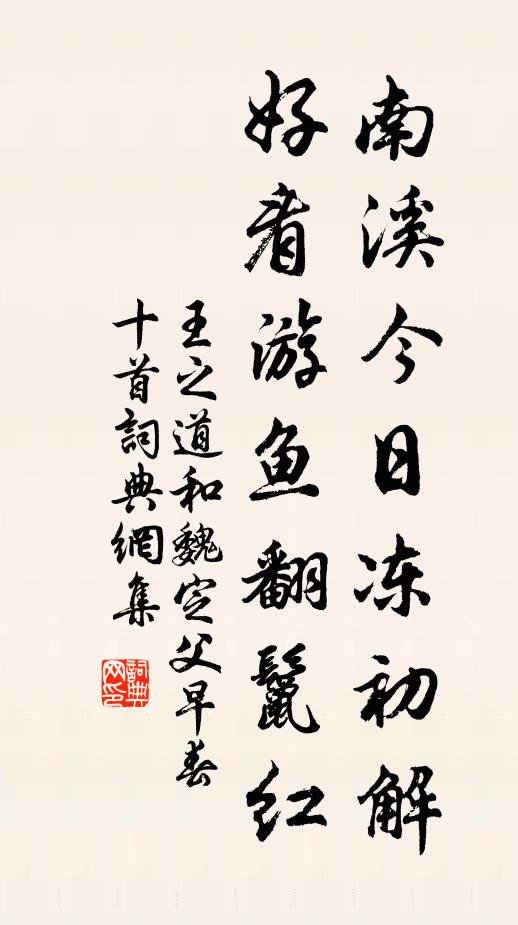 南溪今日冻初解
好看游鱼翻鬣红
王之道和魏定父早春
十首詞典網集
詞典网印